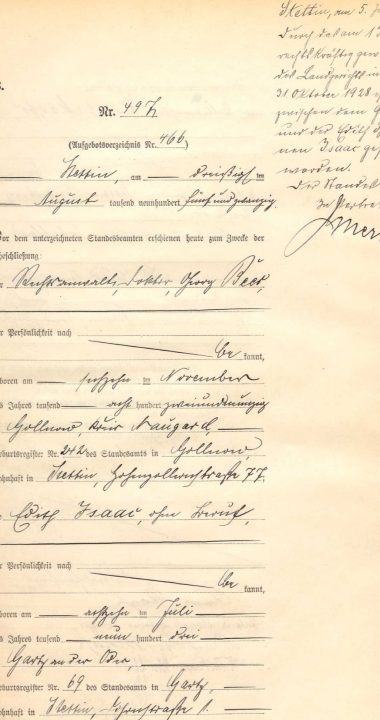 B.
Nr. 497
(Aufgebotsverzeichnis Nr. 466)
Stettin, am dreißigsten
August tausend neunhundert fünfundzwanzig.
Vor dem unterzeichneten Standesbeamten erschienen heute zum Zwecke der
Eheschließung:
Rechtsanwalt, Doktor, Georg
der Persönlichkeit nach
be kannt,
geboren am sechzehnten November
des Jahres tausend acht hundert zweiundneunzig
Gollnow, Kreis Naugard,
Geburtsregister Nr. 242 des Standesamts in Gollnow,
wohnhaft in Stettin Hohenzollernstraße 77,
Edith Isaac, ohne Beruf,
der Persönlichkeit nach
be kannt,
geboren am achtzehnten Juli
des Jahres tausend neun hundert drei
Gartz an der Oder,
Geburtsregister Nr. 69 des Standesamts in Gartz,
wohnhaft in Stettin, 1.
Stettin, am 5.
Durch das am
rechtskräftig
des Landgerichts in
31 Oktober 1928
zwischen dem
und der Edith
nen Isaac
worden.
Der Standes
In Vertre